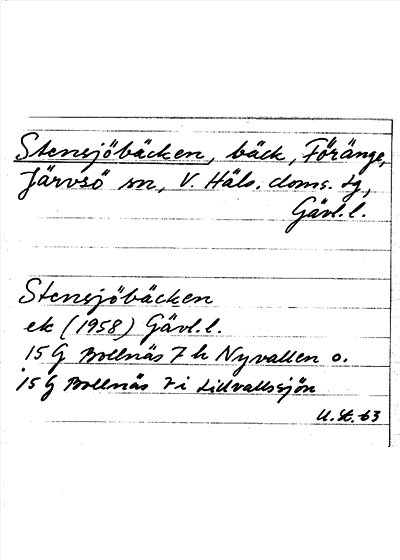 Stensjöbäcken, bäck, Föränge,
Järvsö sn, V. Häls. doms. tg,
Gävl.l.
Stensjöbäcken
ek (1958) Gävl.l.
15 G Bollnäs 7 h Nyvallen o.
15 G Bollnäs 7 i Lillvallssjön
U.St. 63